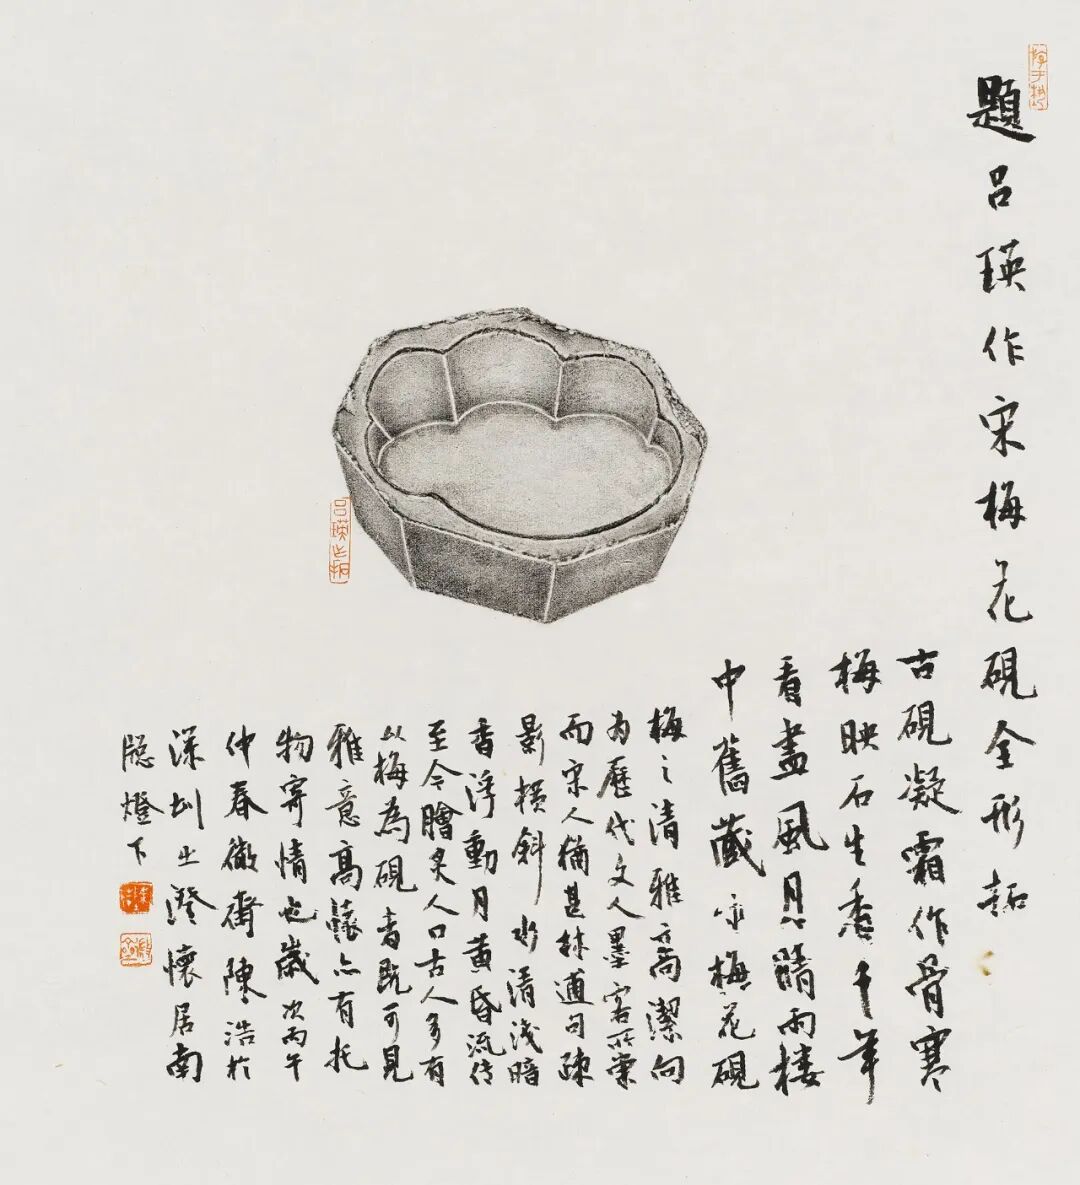 題呂瑛作宋梅花硯全形拓
古硯凝霜作骨寒
梅映石生香千年
看盡風息晴雨樓
中舊藏梅花硯
梅之清雅高潔向
为歷代文人墨客所崇
而宋人猶甚林逋句疎
影橫斜水清淺暗
香浮動月黃昏流傳
至今膾炙人口古人多有
以梅為硯者既可見
雅意高懷亦有托
物寄情也歲次丙午
仲春徽齋陳浩於
深圳之澄懷居南
牕燈下
呂瑛之拓